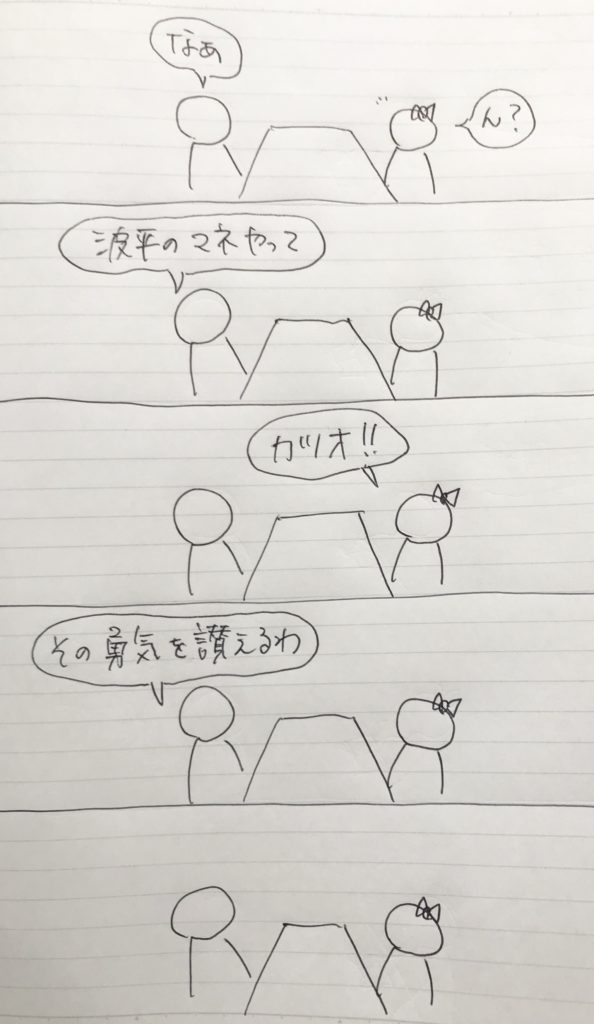 なあ
ん?
波平のマネやって
カツオ!!
その勇気を讃えるわ